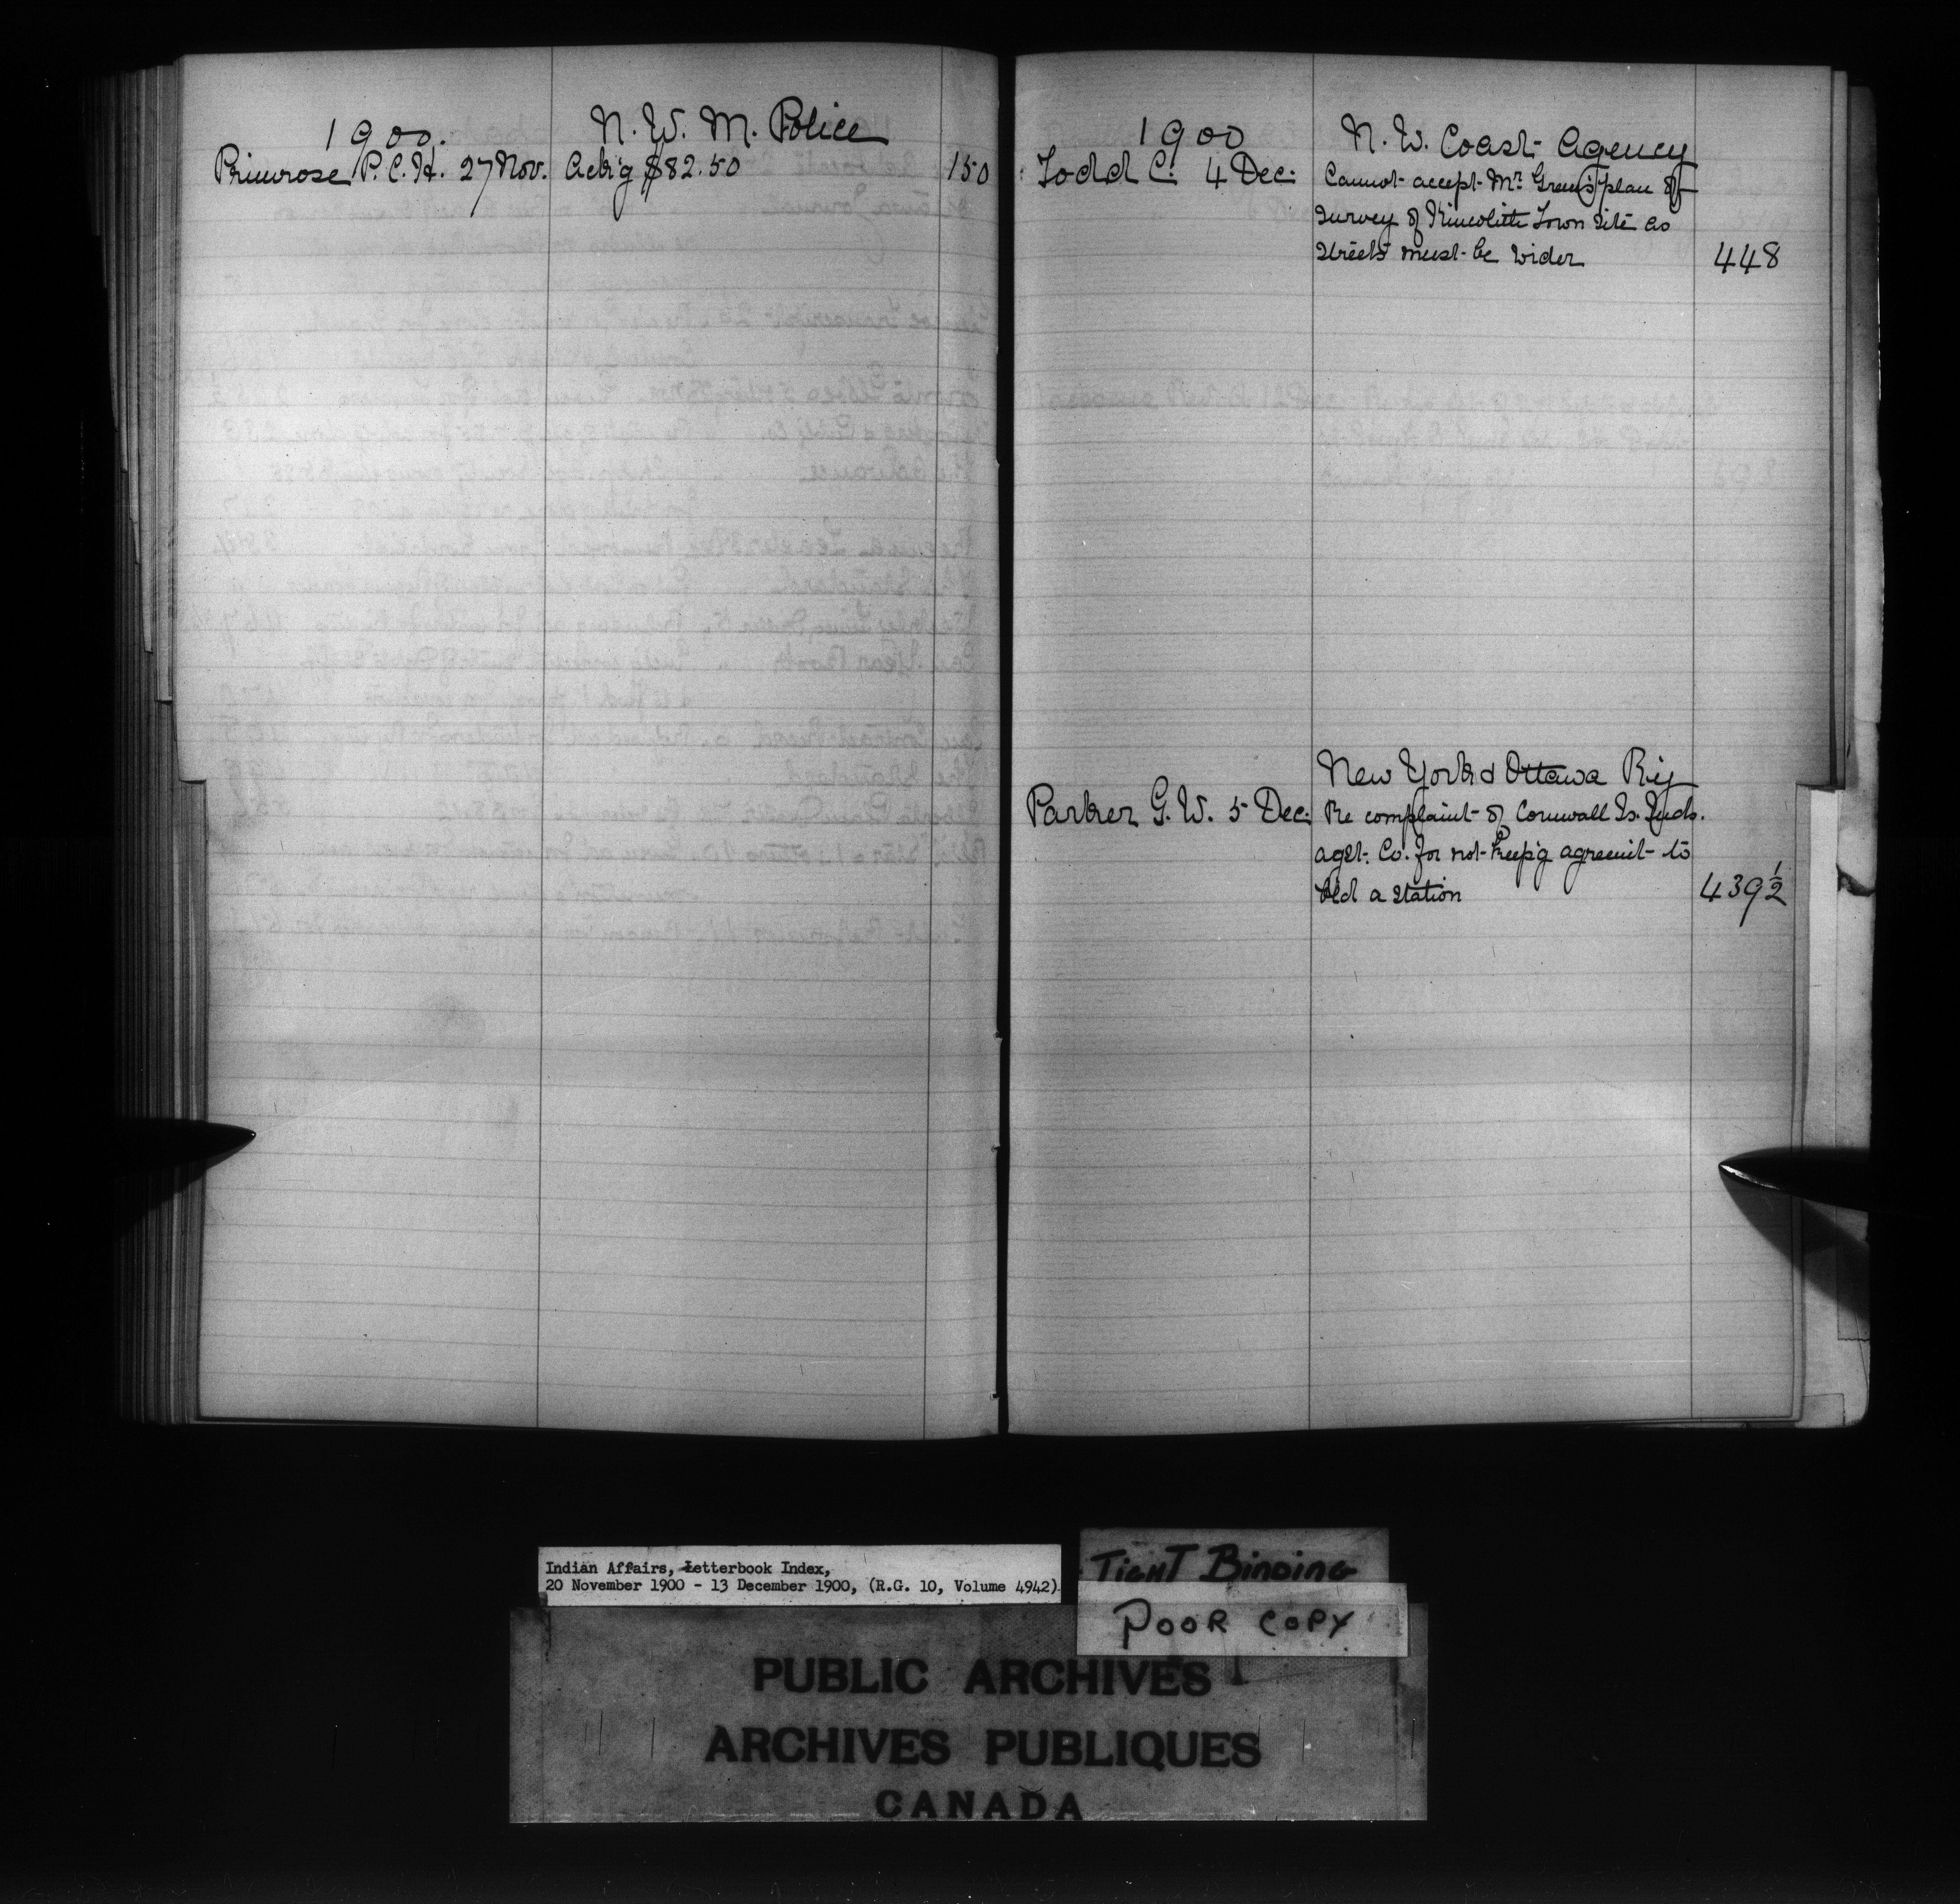 1900. N. W. M. Police
Primrose P. C. H. 27 Nov. Ack'g $82.50 150
1900 N. W. Coast Agency
Todd C. 4 Dec. Cannot accept Mr Green's plan of
survey of Kincolith Town site as
streets must be wider 448
New York & Ottawa Ry
Parker G. W. 5 Dec. Re complaint of Cornwall Is. Inds.
agst. Co. for not keep'g agreemt to
bld a station 439½
Indian Affairs, Letterbook Index,
20 November 1900 - 13 December 1900, (R.G. 10, Volume 4942)
TIGHT BINDING
POOR COPY
PUBLIC ARCHIVES
ARCHIVES PUBLIQUES
CANADA